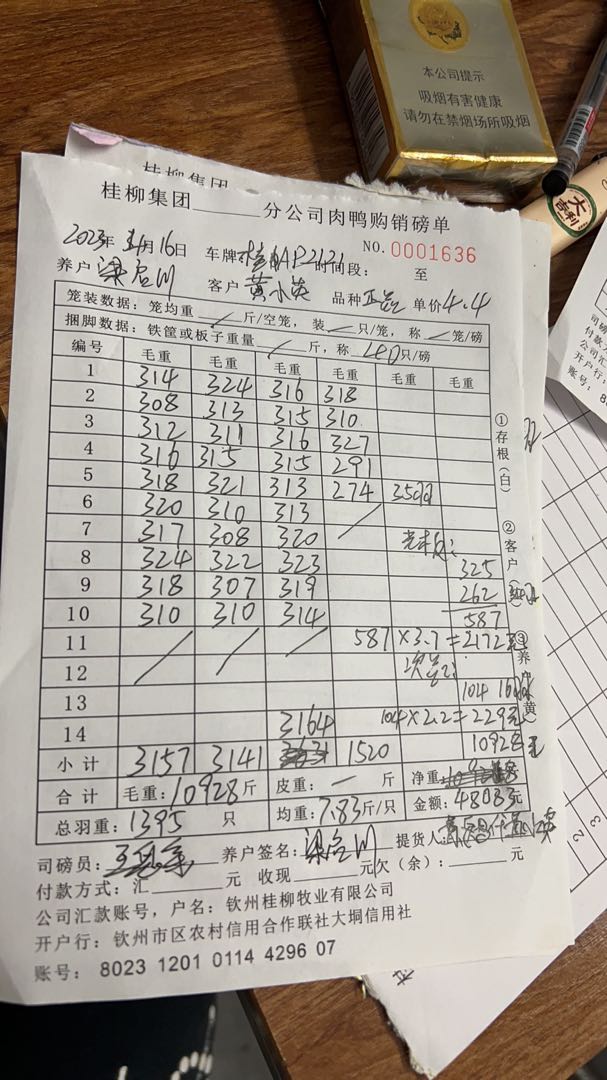 本公司提示
吸烟有害健康
请勿在禁烟场所吸烟
大吉利
桂柳集团
桂柳集团______分公司肉鸭购销磅单
NO.0001636
2023年4月16日 车牌 AP2121 时间段: 至
养户 客户 黄小英 品种 正品 单价4.4
笼装数据: 笼均重 / 斤/空笼, 装 / 只/笼, 称 / 笼/磅
捆脚数据: 铁筐或板子重量 / 斤, 称 40只/磅
编号 毛重 毛重 毛重 毛重 毛重 毛重
1 314 324 316 318
2 308 313 315 310
3 312 311 316 327
4 316 315 315 291
5 318 321 313 274 35只
6 320 310 313 /
7 317 308 320
8 324 322 323 325
9 318 307 319 262
10 310 310 314 587
11 / / / 587×3.7=2172元
12 次品:
13 104 16只
14 3164 104×2.2=229元
小计 3157 3141 1520 10928
合计 毛重: 10928斤 皮重: — 斤 净重:
总羽重: 1395 只 均重: 7.83斤/只 金额: 48083元
司磅员: 养户签名: 提货人:
付款方式: 汇______元 收现______元欠(余): ______元
公司汇款账号, 户名: 钦州桂柳牧业有限公司
开户行: 钦州市区农村信用合作联社大垌信用社
账号: 8023 1201 0114 4296 07
①存根(白)
②客户
③养户(黄)
司磅员
付款方
公司汇
开户行
账号: 8